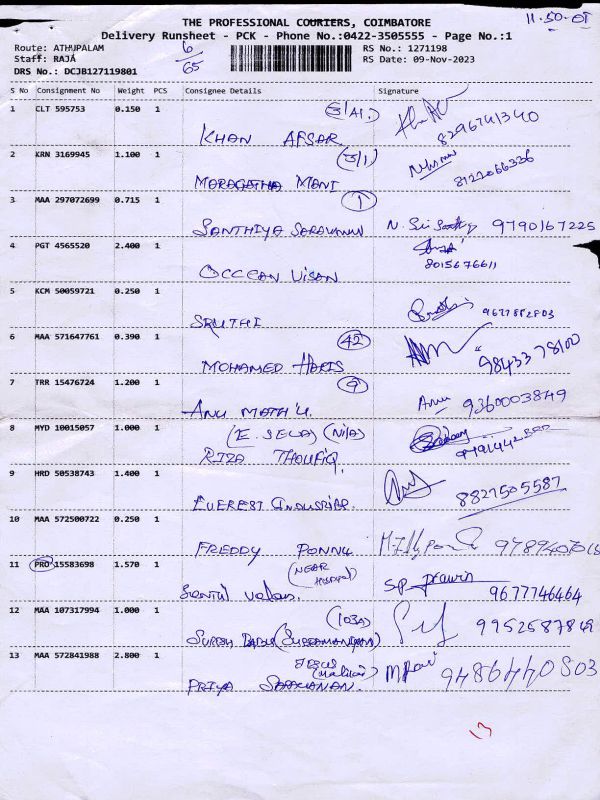 THE PROFESSIONAL COURIERS, COIMBATORE
11.50.01
Delivery Runsheet - PCK - Phone No.:0422-3505555 - Page No.:1
Route: ATHUPALAM
6/65
RS No.: 1271198
Staff: RAJA
RS Date: 09-Nov-2023
DRS No.: DCJB127119801
S No Consignment No Weight PCS Consignee Details Signature
1 CLT 595753 0.150 1
KHAN AFSAR
8296741340
2 KRN 3169945 1.100 1 (3/1)
MARAGATHA MANI
8122066326
3 MAA 297072699 0.715 1 (1)
SANTHIYA SARAVANAN 9790167225
4 PGT 4565520 2.400 1
8015676611
OCCEAN VISON
5 KCM 50059721 0.250 1
SRUTHI
6 MAA 571647761 0.390 1 (42)
MOHAMED HARIS 9843378100
7 TRR 15476724 1.200 1 (9)
ANU MATHU. Anu 9360003849
8 MYD 10015057 1.000 1 (N/A)
RIZA THOUFIQ.
9 HRD 50538743 1.400 1
EVEREST INDUSTRIES. 8827505587
10 MAA 572500722 0.250 1
FREDDY PONNU
11 PRO 15583698 1.570 1 (NEAR Hospital)
SP. Prawin
9677746464
12 MAA 107317994 1.000 1 (103A)
SURESH BABU (SUBRAMANIYAM) 9952587849
13 MAA 572841988 2.800 1
PRIYA SARAVANAN. 9486440803
13